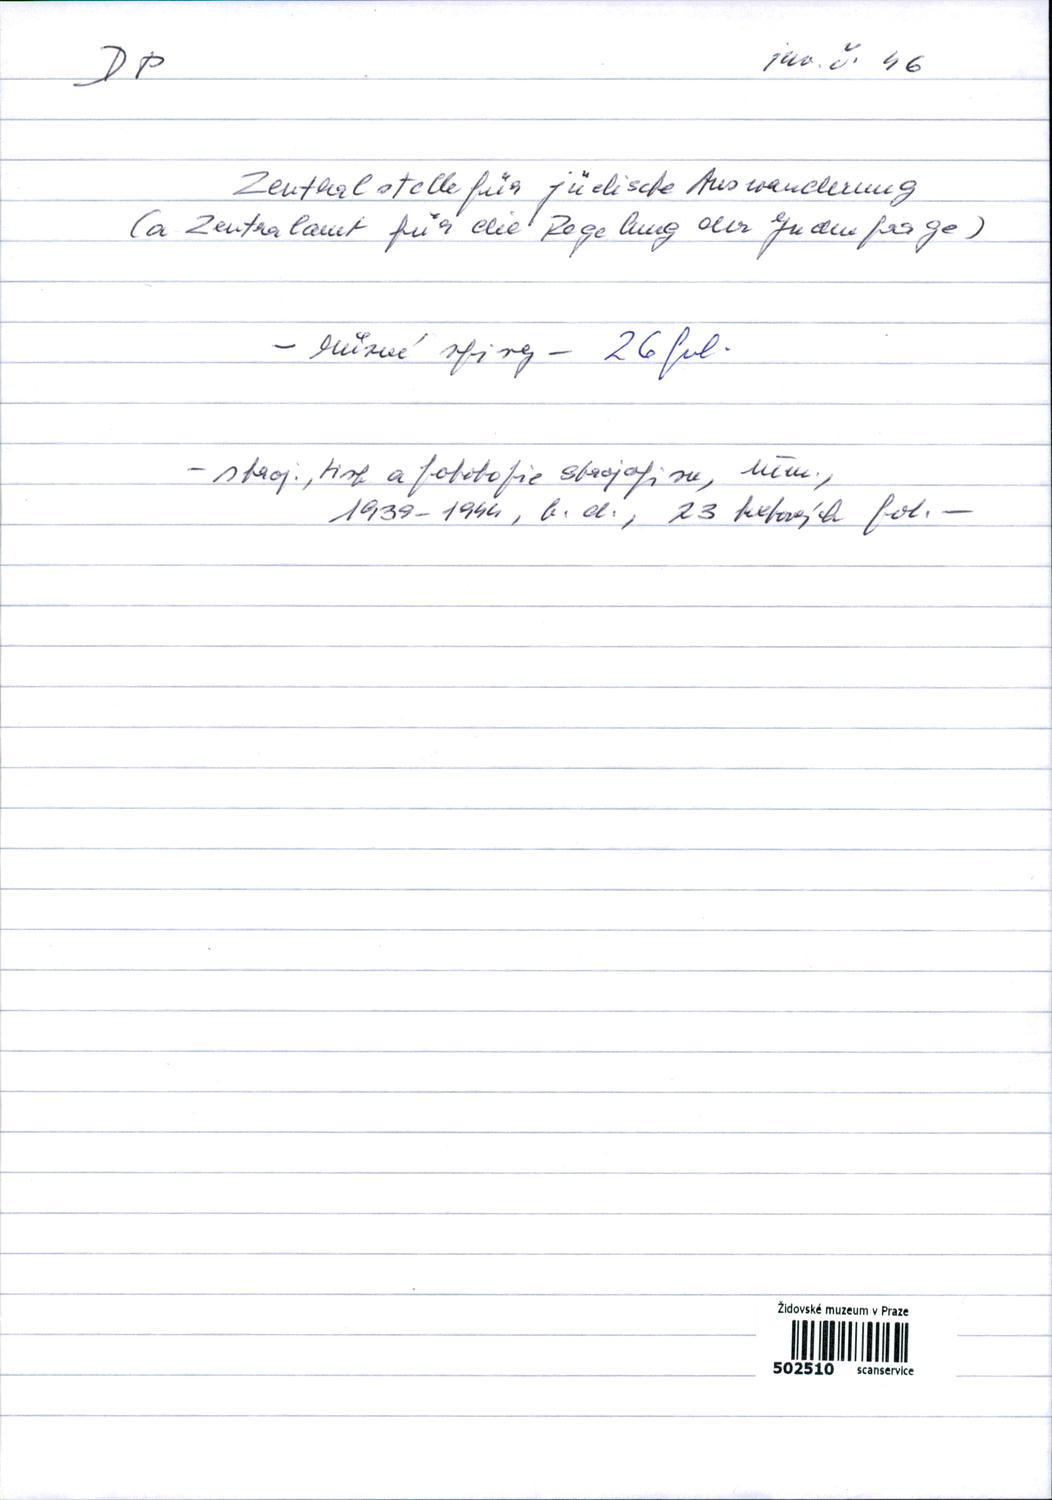 DP
inv. č. 46
Zentralstelle für jüdische Auswanderung
(a Zentralamt für die Regelung der Judenfrage)
- různé spisy - 26 fol.
- stroj., tisk a fotokopie strojopisu, něm.,
1939-1944, b. d., 23 textových fol. -
Židovské muzeum v Praze
502510 scanservice